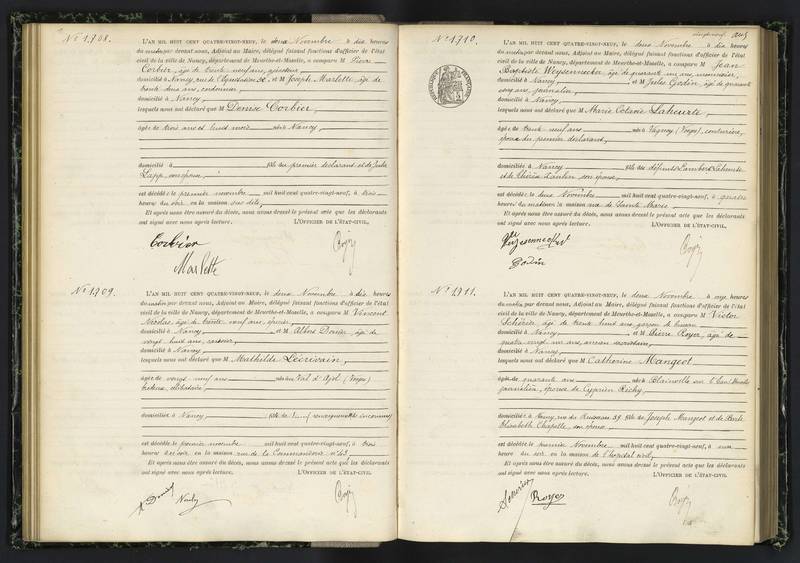 N° 1908.
L'AN MIL HUIT CENT QUATRE-VINGT-NEUF, le deux Novembre à dix heures
du matin par devant nous, Adjoint au Maire, délégué faisant fonctions d'officier de l'état
civil de la ville de Nancy, département de Meurthe-et-Moselle, a comparu M Pierre
Corbier, âgé de trente neuf ans,
domicilié à Nancy, et M Joseph Marlette, âgé de
trente deux ans, cordonnier
domicilié à Nancy
lesquels nous ont déclaré que M Denise Corbier
âgée de trois ans et huit mois née à Nancy
domicilié à fille du premier déclarant et de Julie
Lapp, son épouse
est décédée le premier novembre mil huit cent quatre-vingt-neuf, à trois
heures du soir en la maison sus dite
Et après nous être assuré du décès, nous avons dressé le présent acte que les déclarants
ont signé avec nous après lecture. L'OFFICIER DE L'ÉTAT-CIVIL,
Corbier
Marlette
N° 1909.
L'AN MIL HUIT CENT QUATRE-VINGT-NEUF, le deux Novembre à dix heures
du matin par devant nous, Adjoint au Maire, délégué faisant fonctions d'officier de l'état
civil de la ville de Nancy, département de Meurthe-et-Moselle, a comparu M Vincent
Nicolas, âgé de trente neuf ans, épicier
domicilié à Nancy et M Albert Denier, âgé de
vingt huit ans,
domicilié à Nancy
lesquels nous ont déclaré que M Mathilde Lécrivain
âgée de vingt neuf ans née au Val d'Ajol (Vosges)
célibataire
domiciliée à Nancy, fille de (renseignements inconnus)
est décédée le premier novembre mil huit cent quatre-vingt-neuf, à trois
heures du soir en la maison rue de la Commanderie n° 43
Et après nous être assuré du décès, nous avons dressé le présent acte que les déclarants
ont signé avec nous après lecture. L'OFFICIER DE L'ÉTAT-CIVIL,
N° 1910.
L'AN MIL HUIT CENT QUATRE-VINGT-NEUF, le deux Novembre à dix heures
du matin par devant nous, Adjoint au Maire, délégué faisant fonctions d'officier de l'état
civil de la ville de Nancy, département de Meurthe-et-Moselle, a comparu M Jean
Baptiste Weyssenmecker, âgé de quarante un ans, menuisier
domicilié à Nancy et M Jules Godin, âgé de quarante
cinq ans, journalier
domicilié à Nancy
lesquels nous ont déclaré que M Marie Octavie Laheurte
âgée de trente neuf ans née à Vagney (Vosges), couturière,
épouse du premier déclarant,
domiciliée à Nancy fille des défunts Lambert Laheurte
et de Thérèse son épouse
est décédée le deux Novembre mil huit cent quatre-vingt-neuf, à quatre
heures du matin en la maison rue de Sainte Marie
Et après nous être assuré du décès, nous avons dressé le présent acte que les déclarants
ont signé avec nous après lecture. L'OFFICIER DE L'ÉTAT-CIVIL,
Godin
N° 1911.
L'AN MIL HUIT CENT QUATRE-VINGT-NEUF, le deux Novembre à onze heures
du matin par devant nous, Adjoint au Maire, délégué faisant fonctions d'officier de l'état
civil de la ville de Nancy, département de Meurthe-et-Moselle, a comparu M Victor
Schérer, âgé de trente huit ans, garçon de bureau
domicilié à Nancy et M Pierre Royer, âgé de
quatre vingt un ans,
domicilié à Nancy
lesquels nous ont déclaré que M Catherine Mangeot
âgée de quarante ans née à Blainville sur l'Eau (Meurthe)
journalière, épouse de Cyprien Richy
domiciliée à Nancy, rue du Ruisseau 39 fille de Joseph Mangeot et de Barbe
Elisabeth Chapelle, son épouse
est décédée le premier Novembre mil huit cent quatre-vingt-neuf, à une
heure du soir en la maison de l'hôpital civil
Et après nous être assuré du décès, nous avons dressé le présent acte que les déclarants
ont signé avec nous après lecture. L'OFFICIER DE L'ÉTAT-CIVIL,
Royer